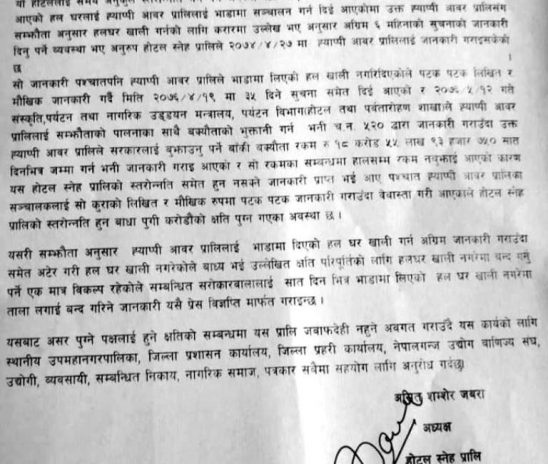 आएको हल घरलाई ह्याप्पी आवर प्रालिलाई भाडामा सञ्चालन गर्न दिई आएकोमा उक्त ह्याप्पी आवर प्रालिसंग
सम्झौता अनुसार हलघर खाली गर्नको लागि करारमा उल्लेख भए अनुसार अग्रिम ६ महिनाको सुचनाको जानकारी
दिनु पर्ने व्यवस्था भए अनुरुप होटल स्नेह प्रालिले २०७४/४/२७ मा ह्याप्पी आवर प्रालिलाई जानकारी गराइसकेको
छ
सो जानकारी पश्चातपनि ह्याप्पी आवर प्रालिले भाडामा लिएको हल खाली नगरिदिएकोले पटक पटक लिखित र
मौखिक जानकारी गर्दै मिति २०७६/४/१९ मा ३५ दिने सुचना समेत दिई आएको र २०७६/५/१२ गते
संस्कृति,पर्यटन तथा नागरिक उड्डयन मन्त्रालय, पर्यटन विभाग(होटल तथा पर्वतारोहण शाखा)ले ह्याप्पी आवर
प्रालिलाई सम्झौताको पालनाका साथै बक्यौताको भुक्तानी गर्न भनी च.न. ५२० द्वारा जानकारी गराउंदा उक्त
ह्याप्पी आवर प्रालिले सरकारलाई बुझाउनु पर्ने बाँकी बक्यौता रकम रु १८ करोड ५५ लाख ९३ हजार ७५० सात
दिनभित्र जम्मा गर्न भनी जानकारी गराइ आएको र सो रकमका सम्बन्धमा हालसम्म रकम नबुझाई आएको कारण
यस होटल स्नेह प्रालिको स्तरोन्नति समेत हुन नसक्ने जानकारी प्राप्त भई आए पश्चात ह्याप्पी आवर प्रालिका
सञ्चालकलाई सो कुराको लिखित र मौखिक रुपमा पटक पटक जानकारी गराउंदा वेवास्ता गरी आएकाले होटल स्नेह
प्रालिको स्तरोन्नति हुन बाधा पुगी करोडौको क्षति पुग्न गएका अवस्था छ ।
यसरी सम्झौता अनुसार ह्याप्पी आवर प्रालिलाई भाडामा दिएको हल घर खाली गर्न अग्रिम जानकारी गराउंदा
समेत अटेर गरी हल घर खाली नगरेकोले बाध्य भई उल्लेखित क्षति परिपूर्तिको लागि हलघर खाली नगरेमा बन्द गर्नु
पर्ने एक मात्र विकल्प रहेकोले सम्बन्धित सरोकारवालालाई सात दिन भित्र भाडामा लिएको हल घर खाली नगरेमा
ताला लगाई बन्द गरिने जानकारी यसै प्रेस विज्ञप्ति मार्फत गराइन्छ ।
यसबाट असर पुग्ने पक्षलाई हुने क्षतिको सम्बन्धमा यस प्रालि जवाफदेही नहुने अवगत गराउदै यस कार्यको लागि
स्थानीय उपमहानगरपालिका, जिल्ला प्रशासन कार्यालय, जिल्ला प्रहरी कार्यालय, नेपालगन्ज उद्योग बाणिज्य संघ,
उद्योगी, व्यबसायी, सम्बन्धित निकाय, नागरिक समाज, पत्रकार सबैमा सहयोग लागि अनुरोध गर्दछु
शम्शेर जबरा
अध्यक्ष
होटल स्नेह प्रालि